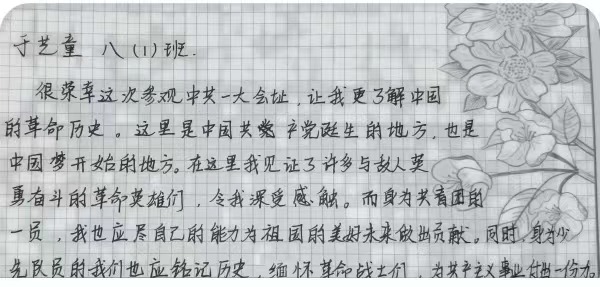 于艺童 八(1)班.
很荣幸这次参观中共一大会址,让我更了解中国
的革命历史。这里是中国共产党诞生的地方,也是
中国梦开始的地方。在这里我见证了许多与敌人英
勇奋斗的革命英雄们,令我深受感触。而身为共青团的
一员,我也应尽自己的能力为祖国的美好未来做出贡献。同时,身为少
先队员的我们也应铭记历史,缅怀革命战士们,为共产主义事业付出一份力。